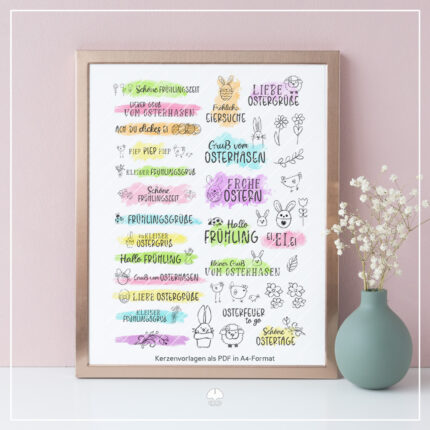 Schöne FRÜHLINGSZEIT
LIEBER GRUß
VOM OSTERHASEN
ACH DU dickes EI
PIEP PIEP PIEP
KLEINER FRÜHLINGSGRUß
Schöne
FRÜHLINGSZEIT
FRÜHLINGSGRÜßE
EIN KLEINER
OSTERGRUß
Hallo FRÜHLING
Gruß vom OSTERHASEN
LIEBE OSTERGRÜßE
KLEINER
FRÜHLINGSGRUß
Fröhliche
EIERSUCHE
LIEBE
OSTERGRÜßE
Gruß vom
OSTERHASEN
FROHE
OSTERN
Hallo
FRÜHLING
EI, EI, EI
Kleiner Gruß
VOM OSTERHASEN
OSTERFEUER
to go
Schöne
OSTERTAGE
Kerzenvorlagen als PDF in A4-Format